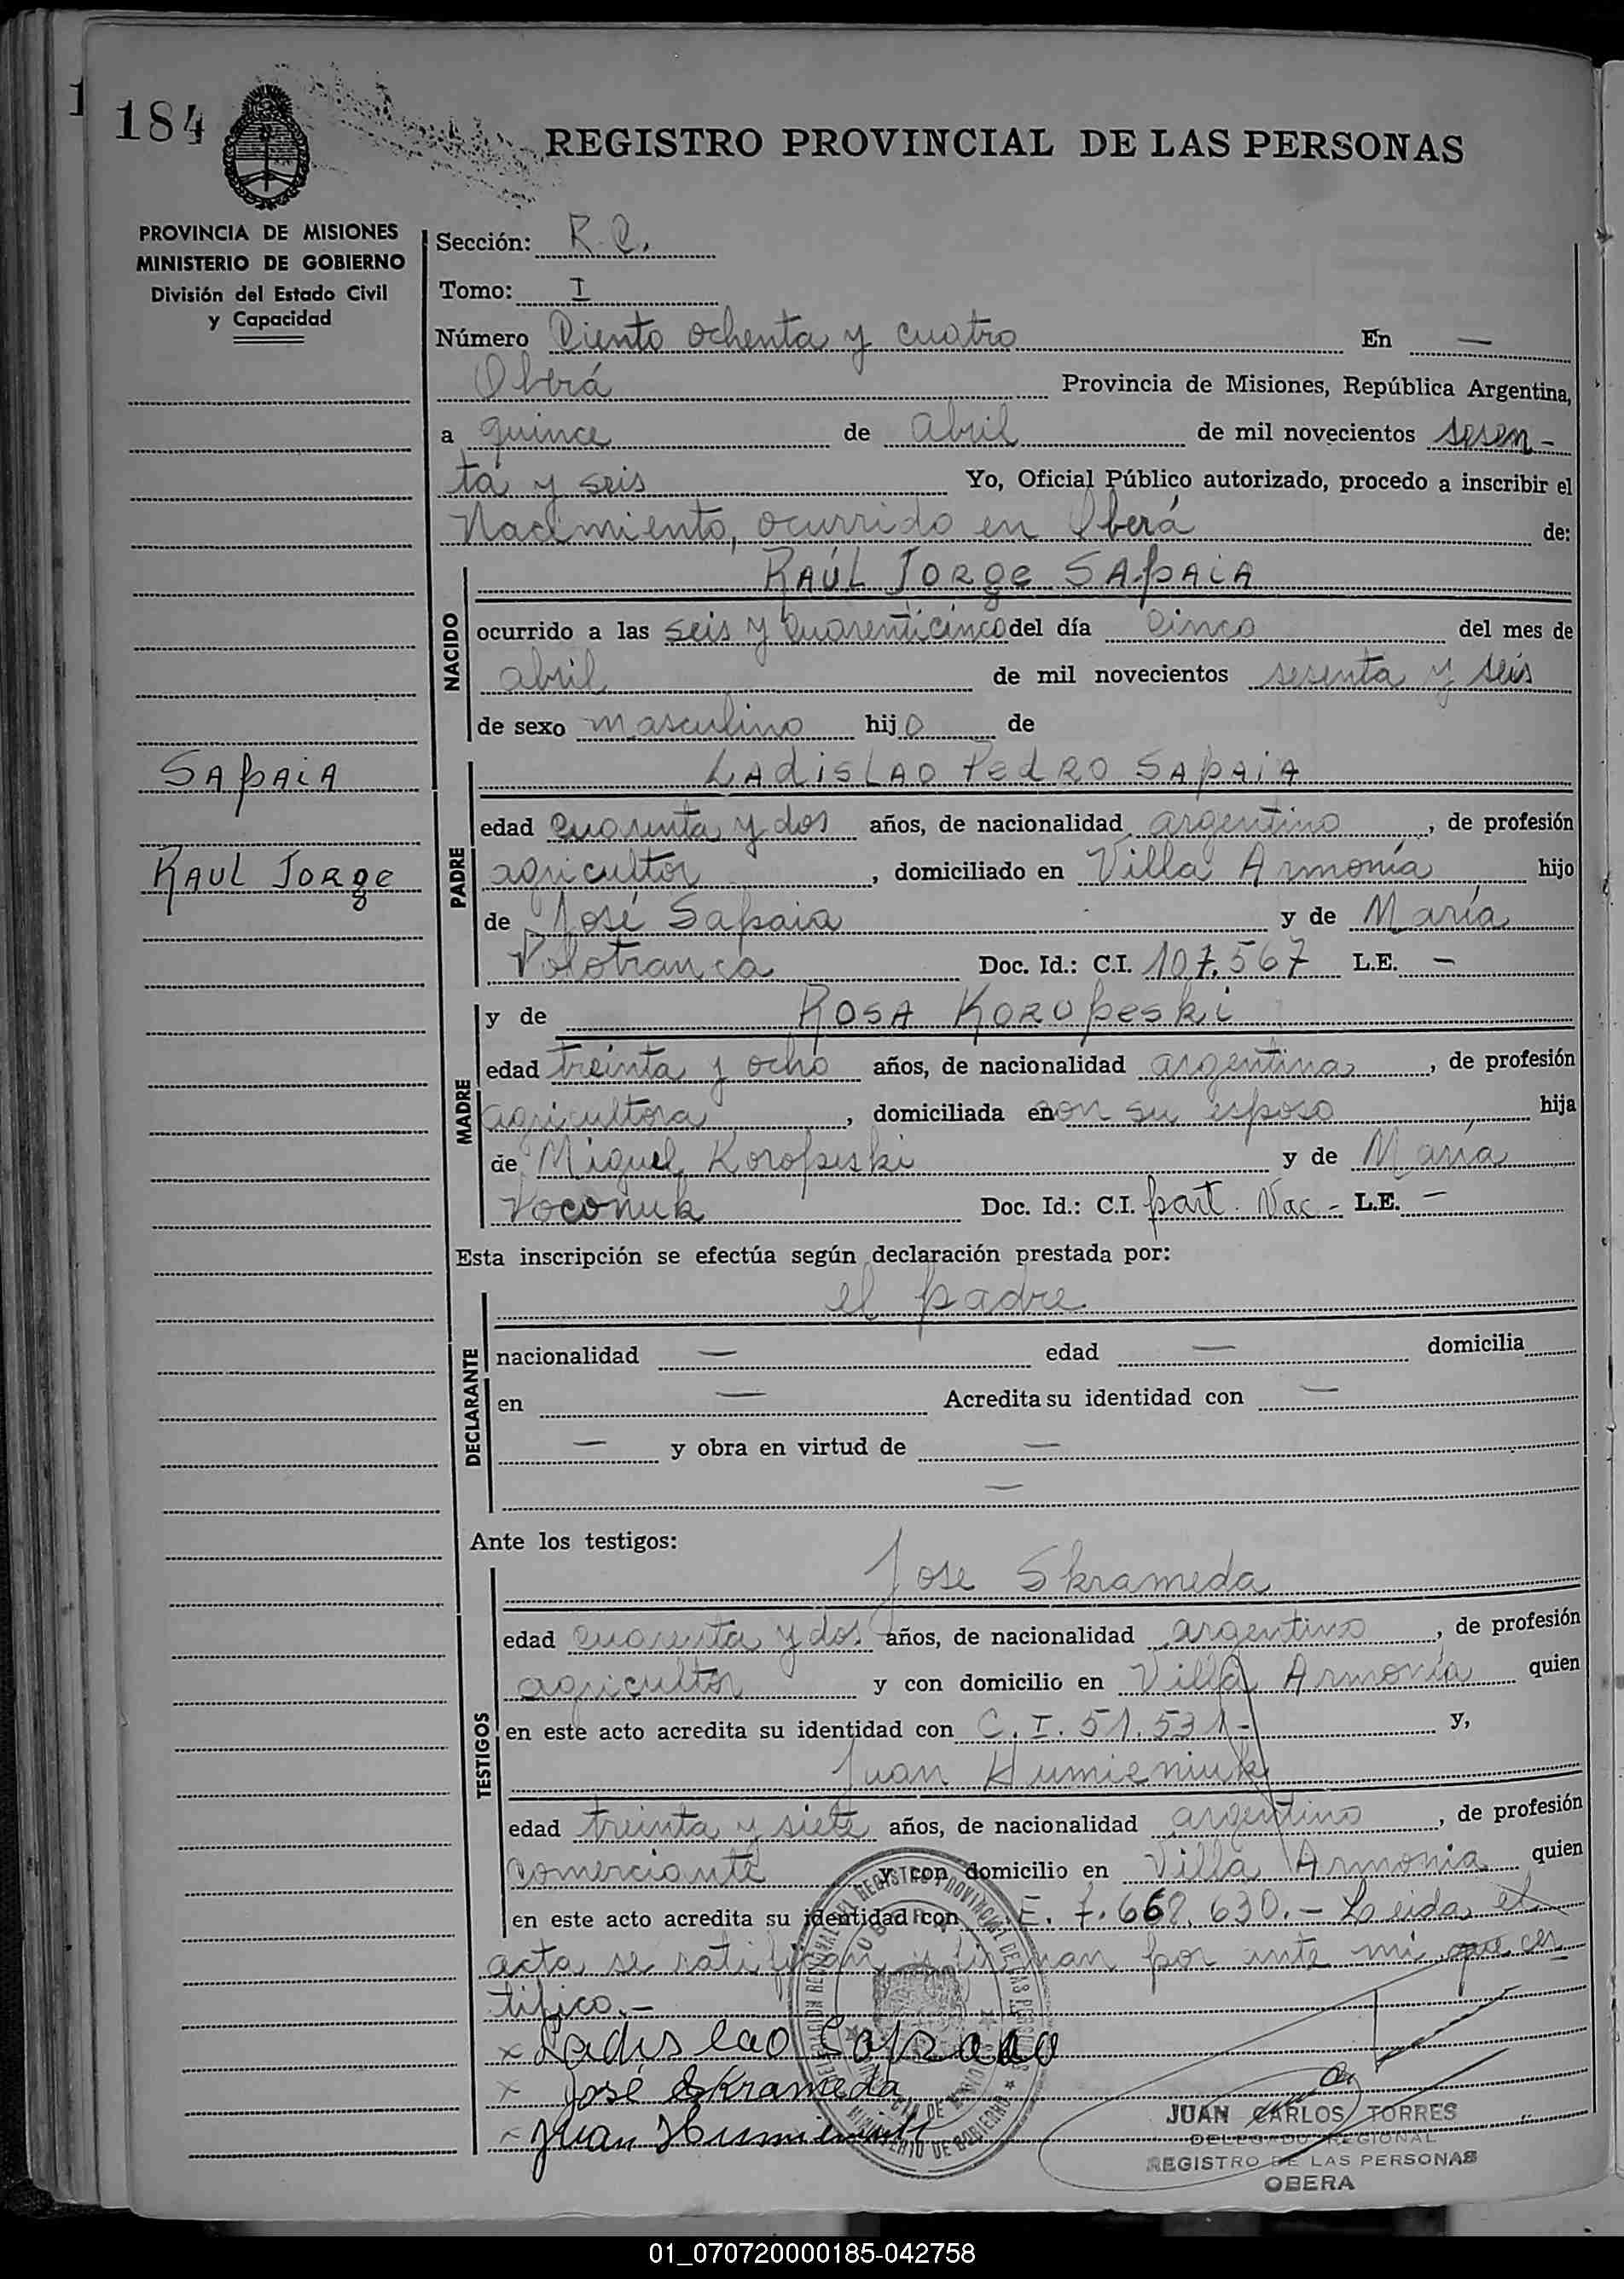 1
184
REGISTRO PROVINCIAL DE LAS PERSONAS
PROVINCIA DE MISIONES
MINISTERIO DE GOBIERNO
División del Estado Civil
y Capacidad
Sección: R. C.
Tomo: I
Número Ciento ochenta y cuatro En —
Oberá Provincia de Misiones, República Argentina,
a quince de abril de mil novecientos sesen-
ta y seis Yo, Oficial Público autorizado, procedo a inscribir el
Nacimiento, ocurrido en Oberá de:
NACIDO
RAÚL JORge SApAiA
ocurrido a las seis y cuarenticinco del día cinco del mes de
abril de mil novecientos sesenta y seis
de sexo masculino hijo de
SApAiA
RAUL JORge
PADRE
LAdiSLAO PedRO SApAiA
edad cuarenta y dos años, de nacionalidad argentino, de profesión
agricultor, domiciliado en Villa Armonía hijo
de José Sapaia y de María
Volotranca Doc. Id.: C.I. 107.567 L.E. —
MADRE
y de ROSA KOROpeski
edad treinta y ocho años, de nacionalidad argentina, de profesión
agricultora, domiciliada en con su esposo hija
de Miguel Koropeski y de María
Voconuk Doc. Id.: C.I. part. Nac- L.E. —
Esta inscripción se efectúa según declaración prestada por:
DECLARANTE
el padre
nacionalidad — edad — domicilia
en — Acredita su identidad con —
— y obra en virtud de —
—
Ante los testigos:
TESTIGOS
Jose Skrameda
edad cuarenta y dos años, de nacionalidad argentino, de profesión
agricultor y con domicilio en Villa Armonía quien
en este acto acredita su identidad con C. I. 51.531- y,
Juan Humieniuk
edad treinta y siete años, de nacionalidad argentino, de profesión
comerciante y con domicilio en Villa Armonia quien
en este acto acredita su identidad con E. 7.668.630.- Leida el
acta se ratifican y firman por ante mi que cer
tifico.-
x Ladislao
x José Skrameda
x Juan Humieniuk
JUAN CARLOS TORRES
DELEGADO REGIONAL
REGISTRO DE LAS PERSONAS
OBERA
01_070720000185-042758